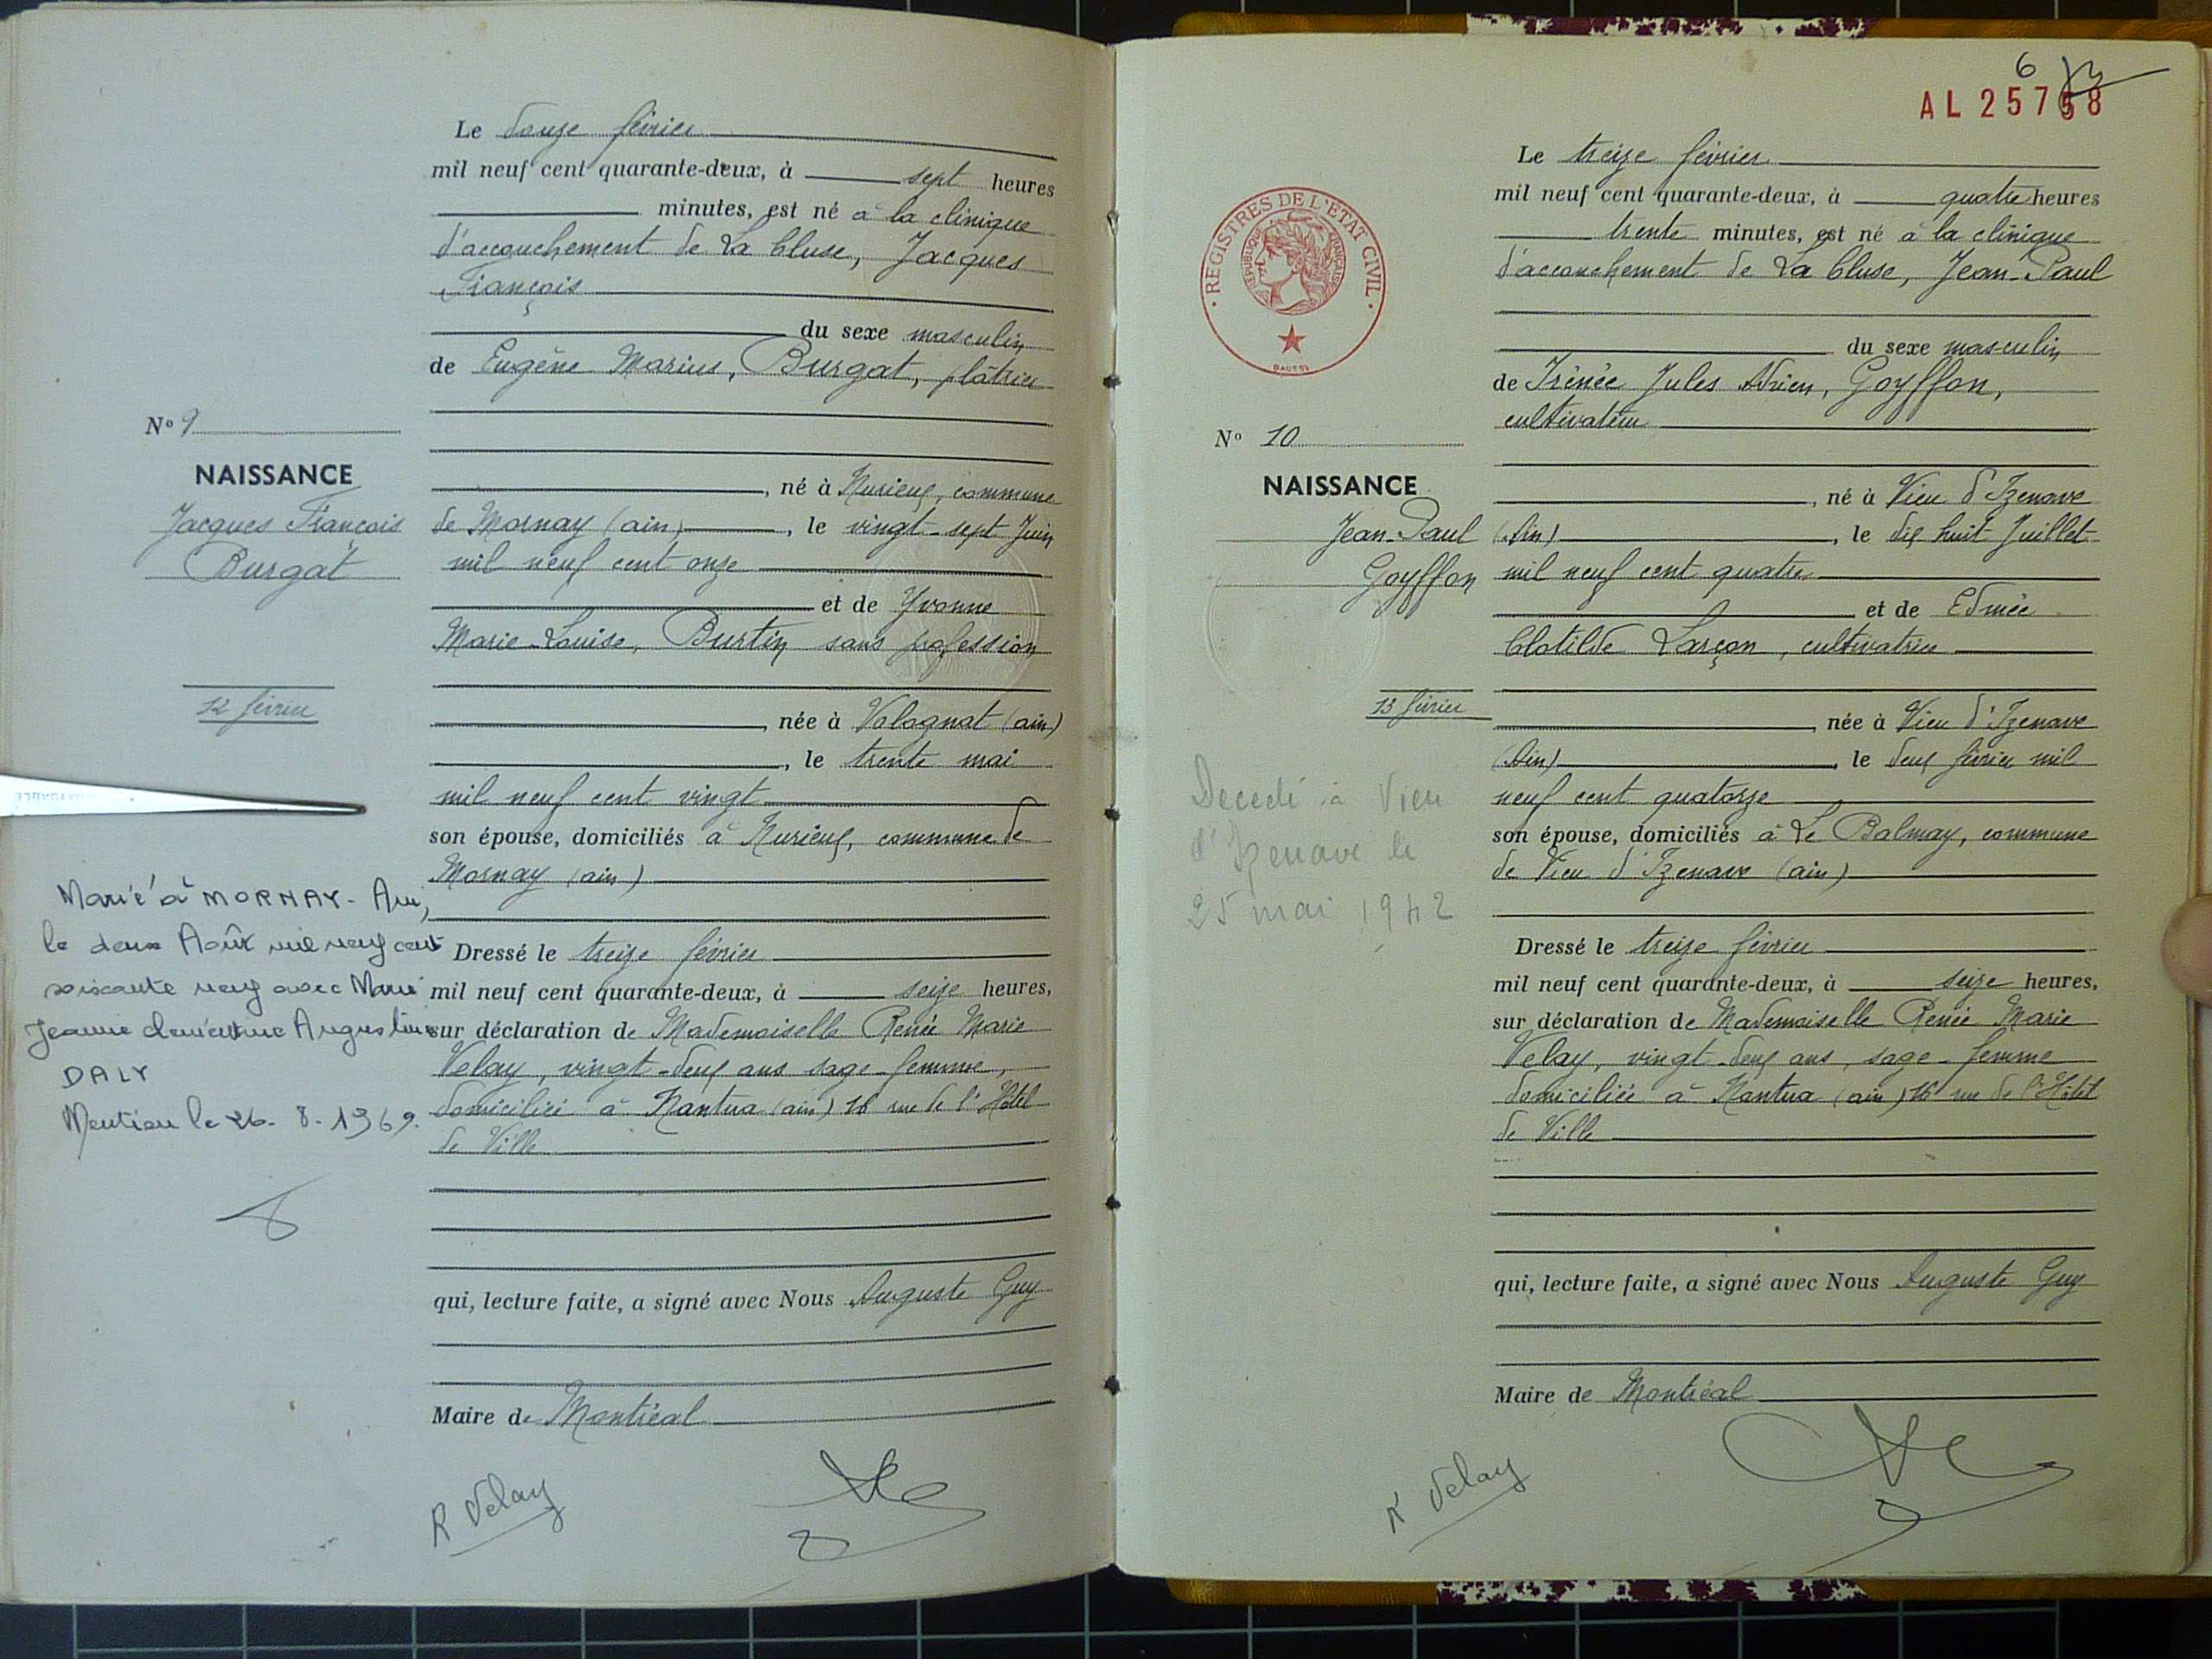 Le douze février
mil neuf cent quarante-deux, à sept heures
minutes, est né à la clinique
d'accouchement de La Cluse, Jacques
François
du sexe masculin
de Eugène Marius, Burgat, plâtrier
, né à Nurieux, commune
de Mornay (ain), le vingt-sept Juin
mil neuf cent onze
et de Yvonne
Marie-Louise, Burtin sans profession
, née à Volognat (ain)
, le trente mai
mil neuf cent vingt
son épouse, domiciliés à Nurieux, commune de
Mornay (ain)
Dressé le treize février
mil neuf cent quarante-deux, à seize heures,
sur déclaration de Mademoiselle Renée Marie
Velay, vingt-deux ans sage-femme,
domiciliée à Nantua (ain) 16 rue de l'Hôtel
de Ville
qui, lecture faite, a signé avec Nous Auguste Guy
Maire de Montréal
R Velay
No 9
NAISSANCE
Jacques François
Burgat
12 février
Marié à MORNAY - Ain,
le deux Août mil neuf cent
soixante neuf avec Marie
Jeanne Augustine
DALY
Mention le 26. 8. 1969.
6
AL 25758
Le treize février
mil neuf cent quarante-deux, à quatre heures
trente minutes, est né à la clinique
d'accouchement de La Cluse, Jean-Paul
du sexe masculin
de Irénée Jules Adrien, Goyffon,
cultivateur
, né à Vieu d'Izenave
(Ain), le dix huit Juillet
mil neuf cent quatre
et de Edmée
Clotilde Larçon, cultivatrice
, née à Vieu d'Izenave
(Ain), le deux février mil
neuf cent quatorze
son épouse, domiciliés à Le Balmay, commune
de Vieu d'Izenave (ain)
Dressé le treize février
mil neuf cent quarante-deux, à seize heures,
sur déclaration de Mademoiselle Renée Marie
Velay, vingt-deux ans, sage-femme
domiciliée à Nantua (ain) 16 rue de l'Hôtel
de Ville
qui, lecture faite, a signé avec Nous Auguste Guy
Maire de Montréal
R Velay
REGISTRES DE L'ETAT CIVIL
REPUBLIQUE FRANÇAISE
No 10
NAISSANCE
Jean-Paul
Goyffon
13 février
Decedé à Vieu
d'Izenave le
25 mai 1942